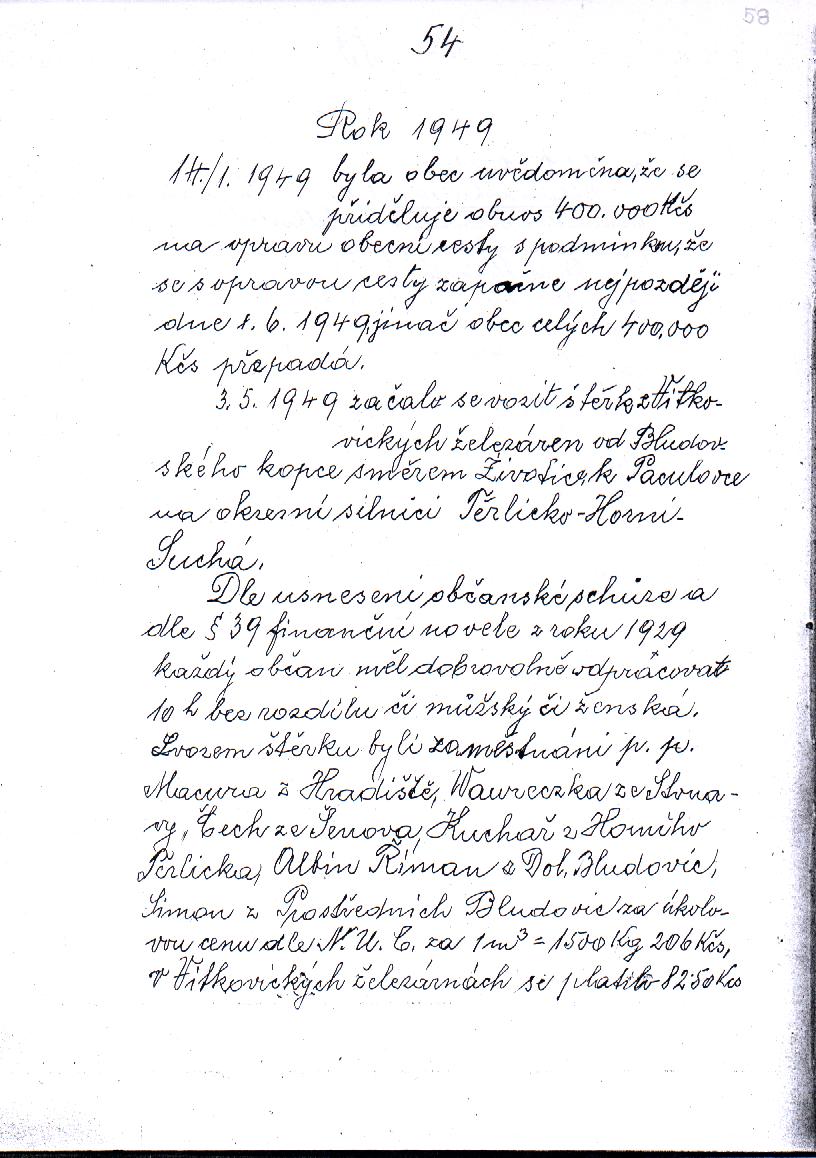 58
54
Rok 1949
14./1. 1949 byla obec uvědoměna, že se
přiděluje obnos 400.000 Kčs
na opravu obecní cesty s podmínkou, že
se s opravou cesty započne nejpozději
dne 1. 6. 1949, jinač obec celých 400.000
Kčs přepadá.
3. 5. 1949 začalo se vozit štěrk z Vítko-
vických železáren od Bludov-
ského kopce směrem Životice, k Paculovce
na okresní silnici Těrlicko-Horní-
Suchá.
Dle usnesení občanské schůze a
dle § 39 finanční novele z roku 1929
každý občan měl dobrovolně odpracovat
10 h bez rozdílu či můžský či ženská.
Svozem štěrku byli zaměstnáni p. p.
Macura z Hradiště, Wawreczka ze Stona-
vy, Čech ze Šenova, Kuchař z Horního
Těrlicka, Albín Říman z Dol. Bludovic,
Siman z Prostředních Bludovic za úkolo-
vou cenu dle N. U. C. za 1 m³ = 1500 Kg 206 Kčs,
v Vítkovických železárnách se platilo 82·50 Kčs